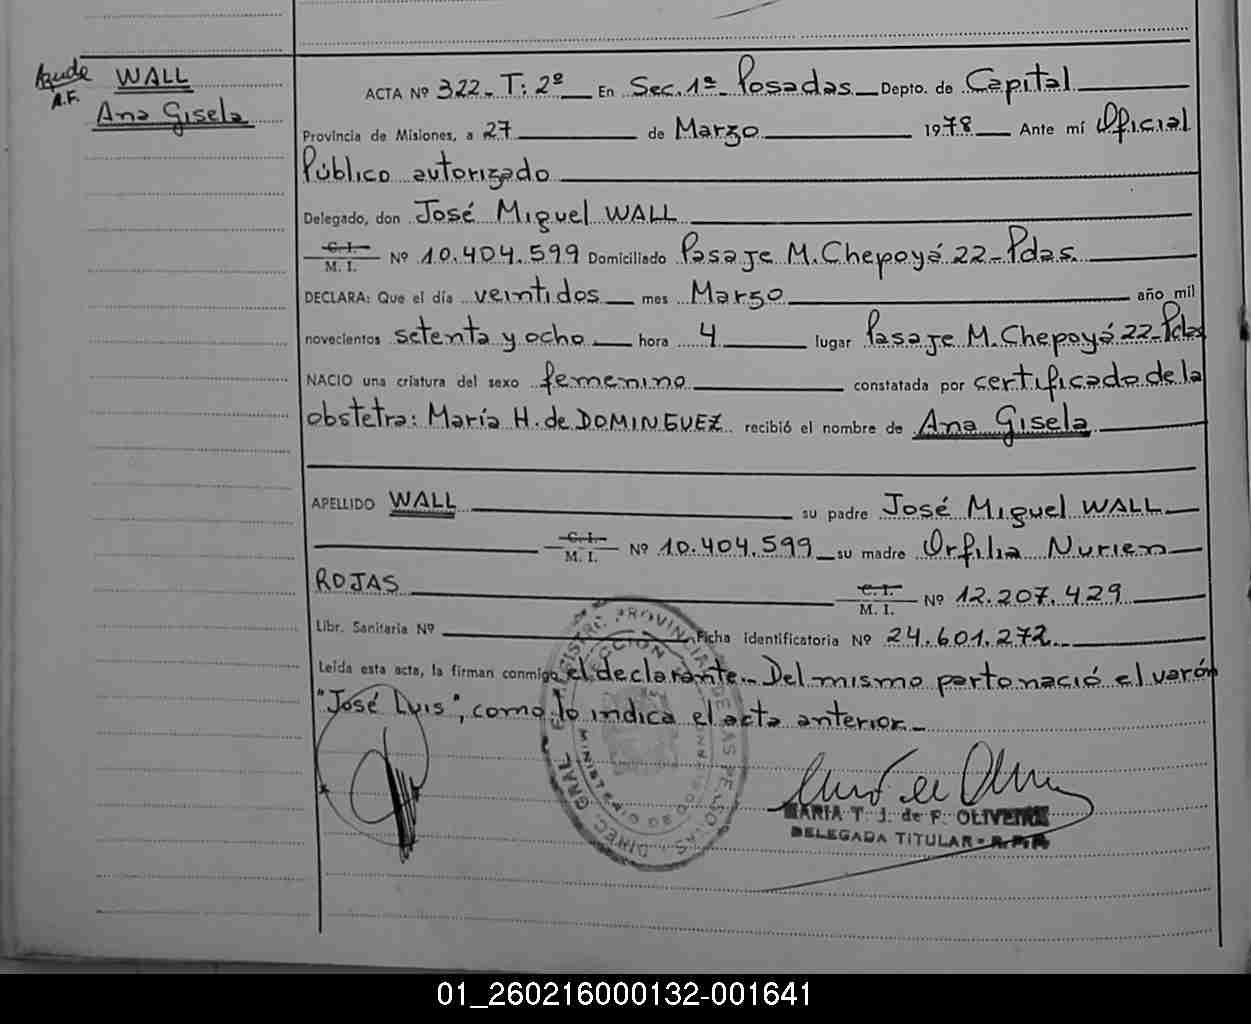 Ayude WALL
A.F.
Ana Gisela
ACTA Nº 322- T: 2º En Sec. 1ª Posadas Depto. de Capital
Provincia de Misiones, a 27 de Marzo 1978 Ante mí Oficial
Público autorizado
Delegado, don José Miguel WALL
C. I.
M. I. Nº 10.404.599 Domiciliado Pasaje M. Chepoyá 22- Pdas.
DECLARA: Que el día veintidos mes Marzo año mil
novecientos setenta y ocho hora 4 lugar Pasaje M. Chepoyá 22- Pdas
NACIO una criatura del sexo femenino constatada por certificado de la
obstetra: María H. de DOMINGUEZ recibió el nombre de Ana Gisela
APELLIDO WALL su padre José Miguel WALL
C. I.
M. I. Nº 10.404.599 su madre Orfilia Nurien
ROJAS C. I.
M. I. Nº 12.207.429
Libr. Sanitaria Nº Ficha identificatoria Nº 24.601.272
Leída esta acta, la firman conmigo el declarante.- Del mismo parto nació el varón
"José Luis", como lo indica el acta anterior.-
MARIA T. J. de F. OLIVEIRA
DELEGADA TITULAR - R.P.P.
01_260216000132-001641